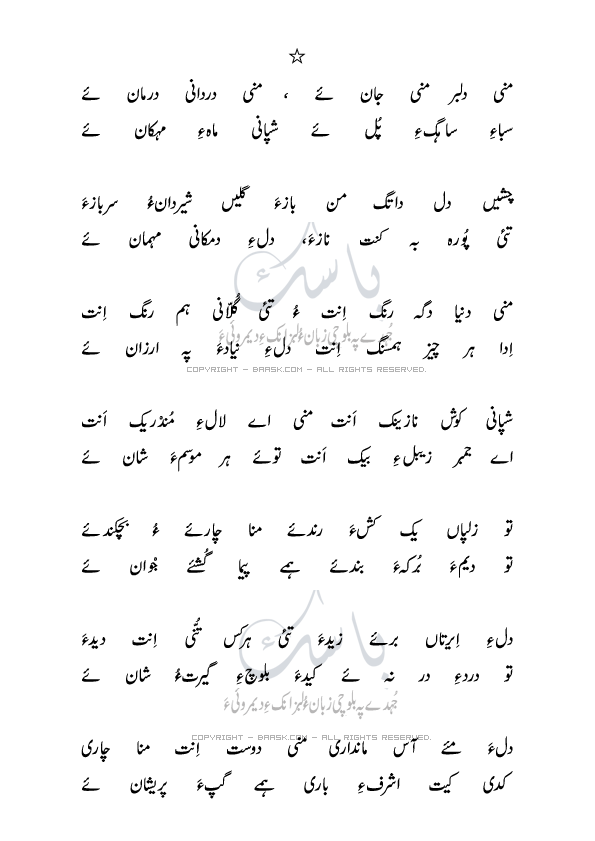 ☆
منی دلبر منی جان ئے ، منی دردانی درمان ئے
سباءِ ساہگءِ پُل ئے شپانی ماہءِ مہکان ئے
چشیں دل داتگ من بازءَ گلیس شیردانءُ سربازءَ
تئ پُورہ بہ کنت نازءَ، دلءِ دمکانی مہمان ئے
منی دنیا دگہ رنگ اِنت ءُ تئ گُلّانی ہم رنگ اِنت
اِدا ہر چیز ہمسنگ اِنت دلءِ نیادءَ پہ ارزان ئے
شپانی کوش نازینک اَنت منی اے لالءِ مُندریک اَنت
اے جمبر زیبلءِ بیک اَنت توئے ہر موسمءَ شان ئے
تو زلپاں یک کشءَ رندئے منا چارئے ءُ بچکندئے
تو دیمءَ بُرکہءَ بندئے ہمے پیما گُشئے جُوان ئے
دلءِ اِیرتاں برئے زیدءَ تئ ہرکس تُنّی اِنت دیدءَ
تو دردءِ در نہ ئے کیدءَ بلوچءِ گیرتءُ شان ئے
دلءَ مئے آس مانداری منی دوست اِنت منا چاری
کدی کیت اشرفءِ باری ہمے گپءَ پریشان ئے
باسک
جُہدے پہ بلوچی زبانءُ لبزانکءِ دیمروئیءَ
COPYRIGHT - BAASK.COM - ALL RIGHTS RESERVED.
باسک
جُہدے پہ بلوچی زبانءُ لبزانکءِ دیمروئیءَ
COPYRIGHT - BAASK.COM - ALL RIGHTS RESERVED.